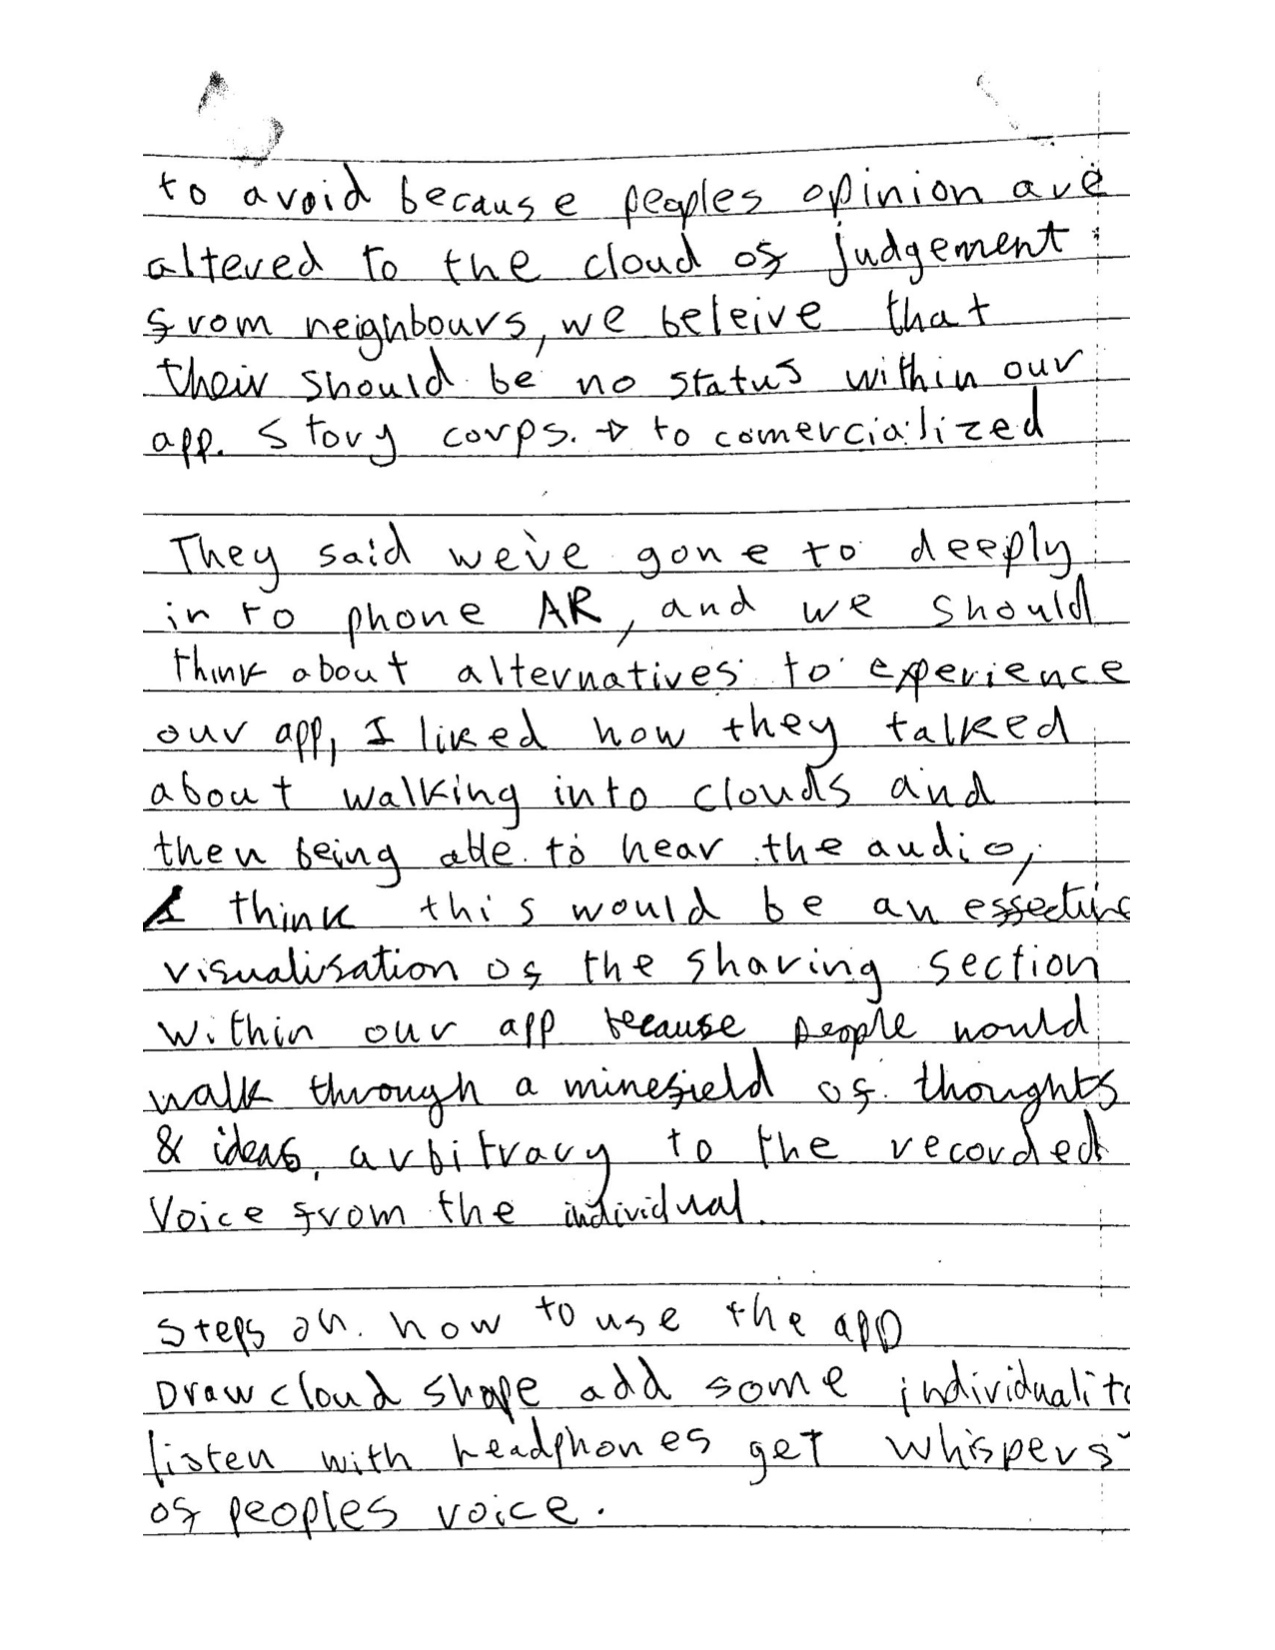 to avoid because peoples opinion are
altered to the cloud of judgement
from neighbours, we beleive that
their should be no status within our
app. Story corps. → to comercialized
They said we've gone to deeply
into phone AR, and we should
think about alternatives to experience
our app, I liked how they talked
about walking into clouds and
then being able to hear the audio,
I think this would be an effective
visualisation of the sharing section
within our app because people would
walk through a minefield of thoughts
& ideas, arbitrary to the recorded
Voice from the individual.
Steps on how to use the app
Draw cloud shape add some individualit
listen with headphones get whispers
of peoples voice.